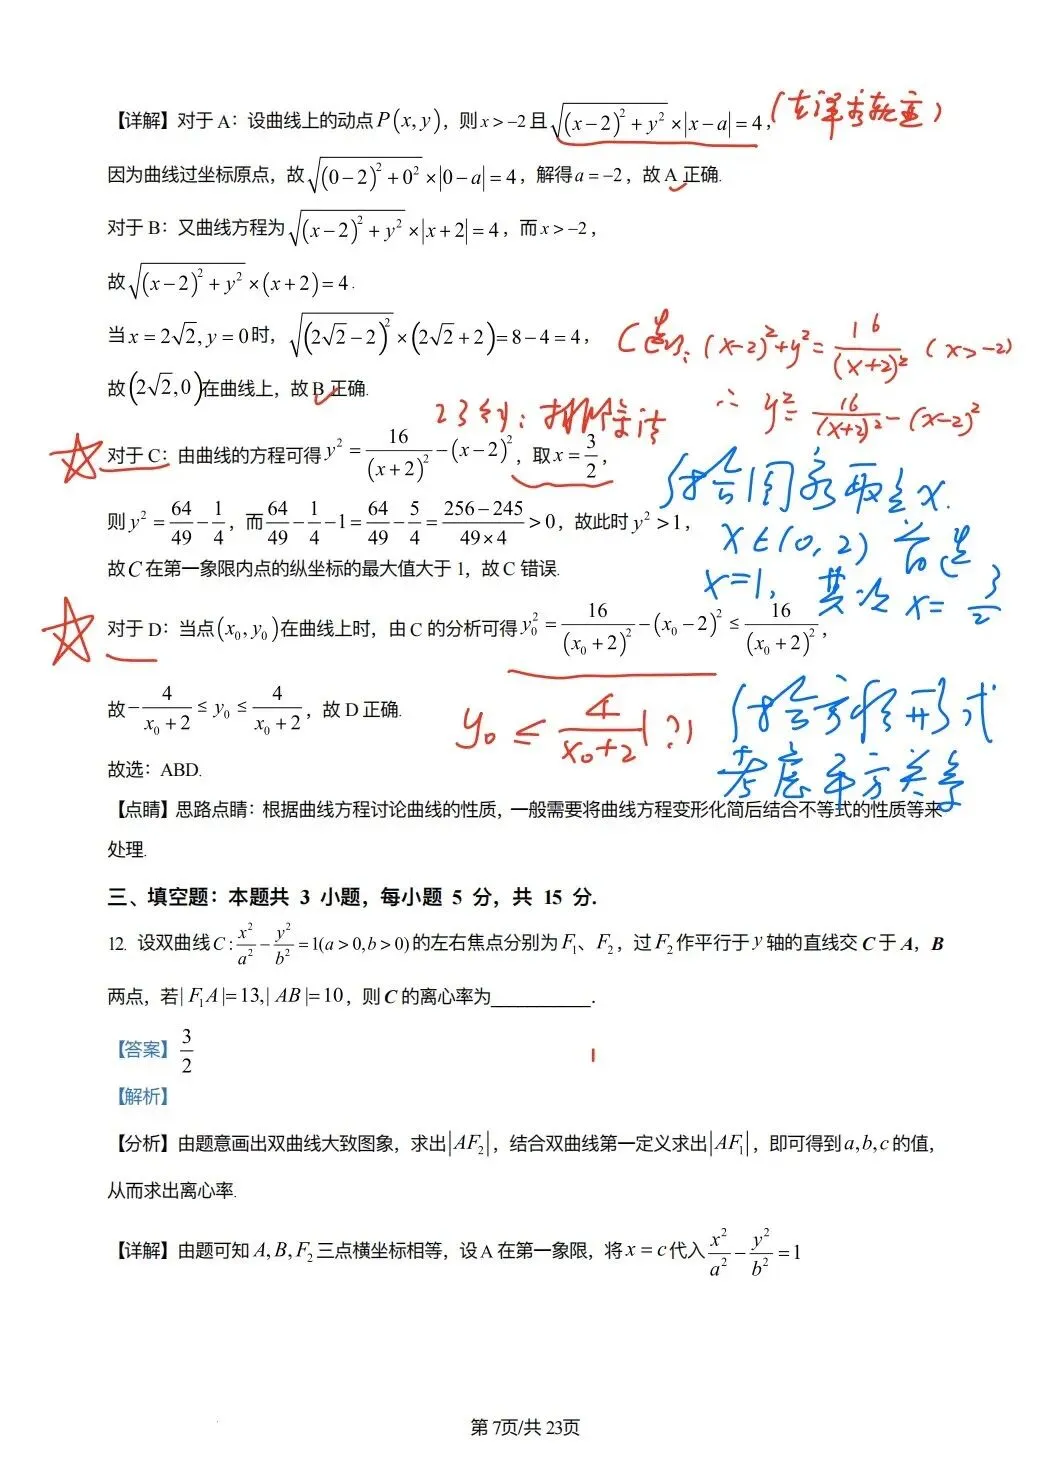 【详解】对于 A：设曲线上的动点 P(x, y)，则 x > −2 且 √((x−2)²+y²) × |x−a| = 4，
（直译求轨迹）
因为曲线过坐标原点，故 √((0−2)²+0²) × |0−a| = 4，解得 a = −2，故 A 正确.
对于 B：又曲线方程为 √((x−2)²+y²) × |x+2| = 4，而 x > −2，
故 √((x−2)²+y²) × (x+2) = 4.
当 x = 2√2, y = 0 时，√((2√2−2)²) × (2√2+2) = 8−4 = 4，
C选项：(x−2)²+y² = 16/(x+2)² (x>−2)
故 (2√2, 0) 在曲线上，故 B 正确.
∴ y² = 16/(x+2)² − (x−2)²
对于 C：由曲线的方程可得 y² = 16/(x+2)² − (x−2)²，取 x = 3/2，
结合图象取点x.
则 y² = 64/49 − 1/4，而 64/49 − 1/4 − 1 = 64/49 − 5/4 = (256−245)/(49×4) > 0，故此时 y² > 1，
x∈(0, 2) 首选
故 C 在第一象限内点的纵坐标的最大值大于 1，故 C 错误.
x=1，其次 x= 3/2
对于 D：当点 (x₀, y₀) 在曲线上时，由 C 的分析可得 y₀² = 16/(x₀+2)² − (x₀−2)² ≤ 16/(x₀+2)²，
故 −4/(x₀+2) ≤ y₀ ≤ 4/(x₀+2)，故 D 正确.
y₀ ≤ 4/(x₀+2)
结合方程形式
考虑平方关系
故选：ABD.
【点睛】思路点睛：根据曲线方程讨论曲线的性质，一般需要将曲线方程变形化简后结合不等式的性质等来
处理.
三、填空题：本题共 3 小题，每小题 5 分，共 15 分.
12. 设双曲线 C: x²/a² − y²/b² = 1(a > 0, b > 0) 的左右焦点分别为 F₁、F₂，过 F₂ 作平行于 y 轴的直线交 C 于 A，B
两点，若 |F₁A| = 13, |AB| = 10，则 C 的离心率为___________.
【答案】3/2
【解析】
【分析】由题意画出双曲线大致图象，求出 |AF₂|，结合双曲线第一定义求出 |AF₁|，即可得到 a, b, c 的值，
从而求出离心率.
【详解】由题可知 A, B, F₂ 三点横坐标相等，设 A 在第一象限，将 x = c 代入 x²/a² − y²/b² = 1
第 7页/共 23页